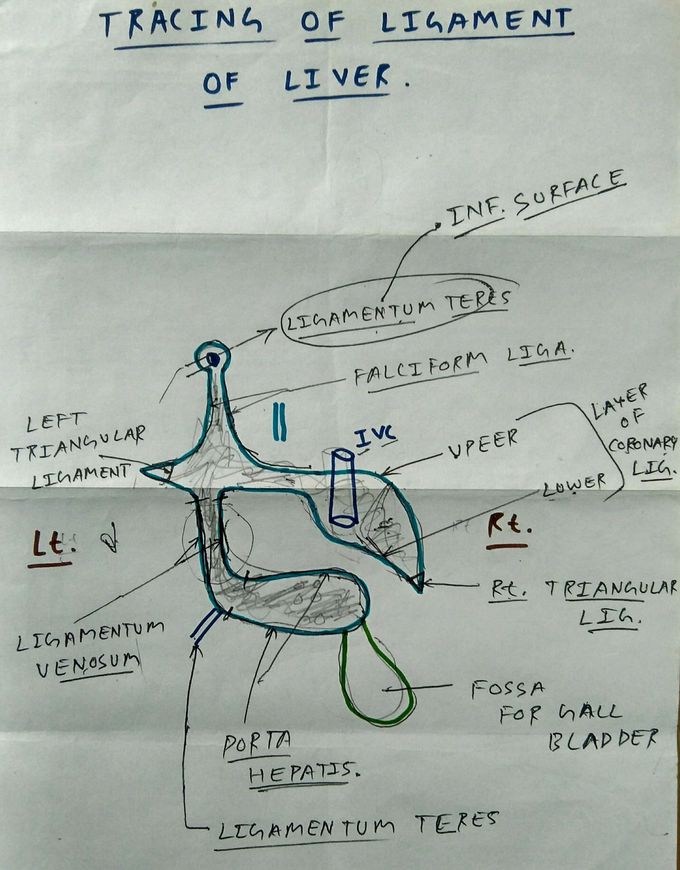 TRACING OF LIGAMENT
OF LIVER.
INF. SURFACE
LIGAMENTUM TERES
FALCIFORM LIGA.
LEFT
TRIANGULAR
LIGAMENT
IVC
UPEER
LOWER
LAYER
OF
CORONARY
LIG.
Lt.
Rt.
Rt. TRIANGULAR
LIG.
LIGAMENTUM
VENOSUM
FOSSA
FOR GALL
BLADDER
PORTA
HEPATIS.
LIGAMENTUM TERES